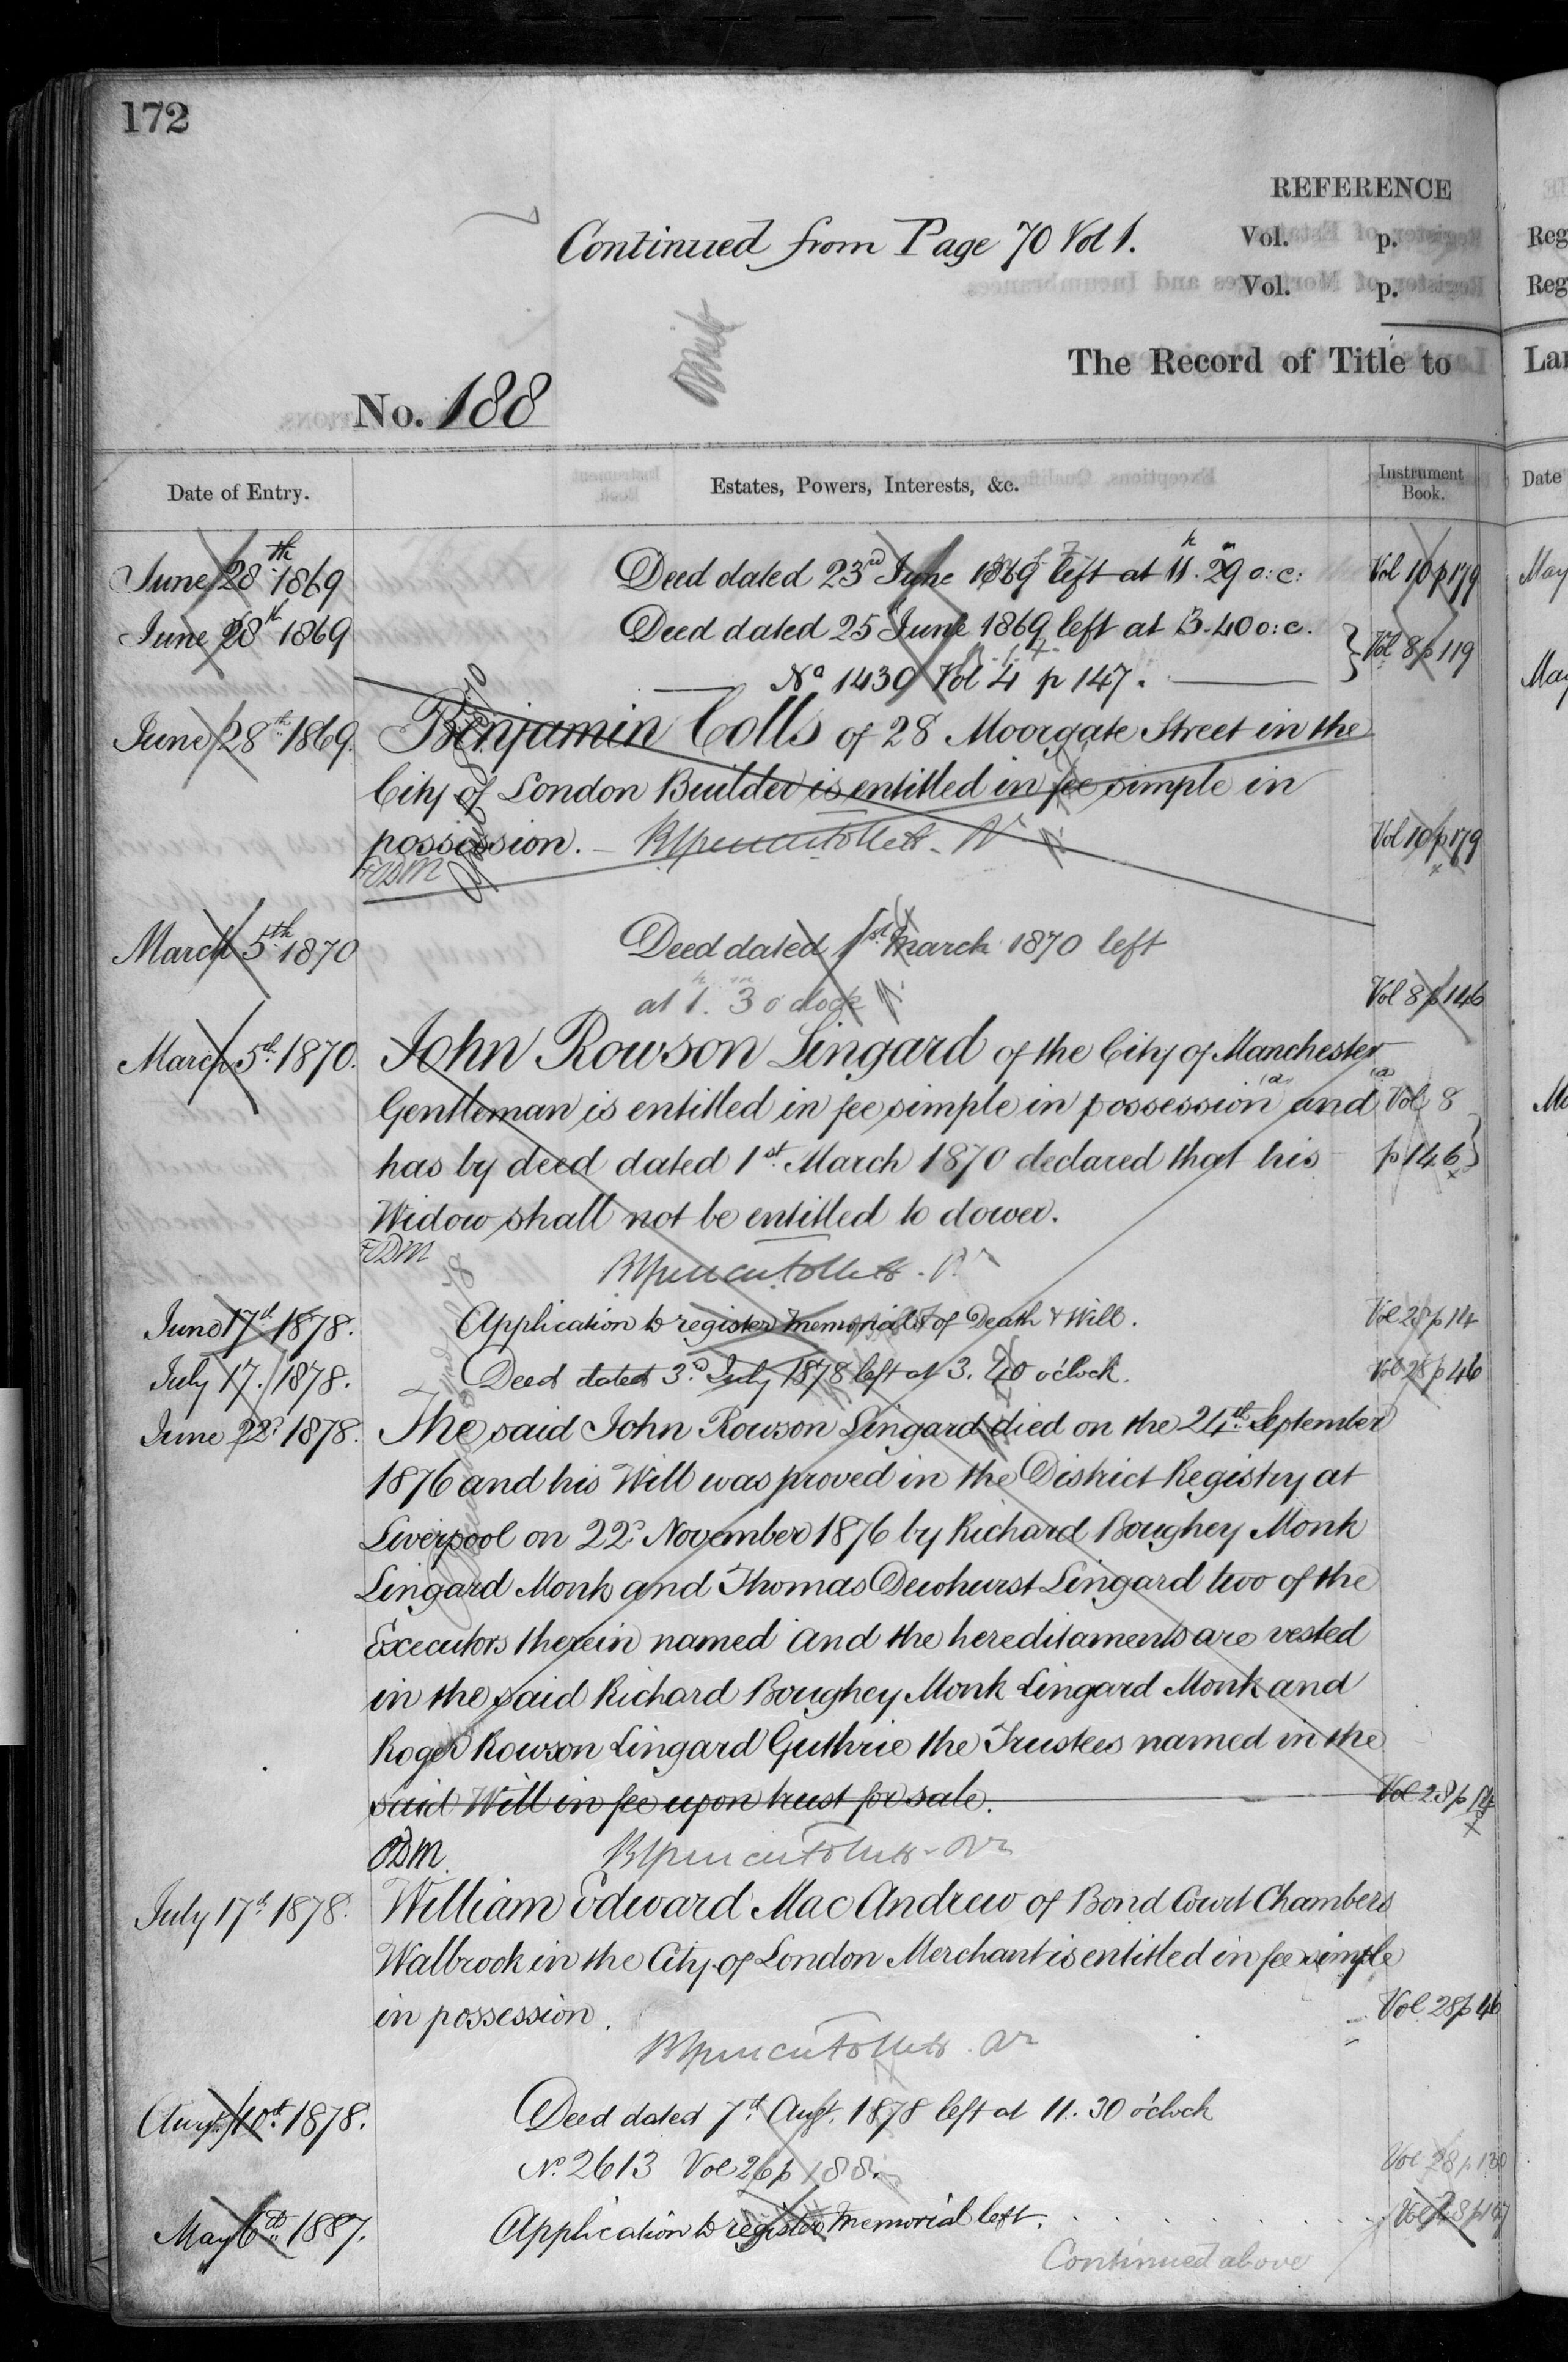 172
REFERENCE
Continued from Page 70 Vol 1.
Vol. p.
Vol. p.
The Record of Title to
No. 188
Date of Entry.
Estates, Powers, Interests, &c.
Instrument Book.
June 28th 1869 Deed dated 23rd June 1869 left at 11h. 29m o:c: Vol 10 p 179
June 28th 1869 Deed dated 25 June 1869 left at 3.40 o:c. Vol 8 p 119
No 1439 Vol 4 p 147.
June 28th 1869. Benjamin Colls of 28 Moorgate Street in the
City of London Builder is entitled in fee simple in
possession. Vol 10 p 179
March 5th 1870 Deed dated 1st March 1870 left
at 1h. 3m o'clock Vol 8 p 146
March 5th 1870. John Rowson Lingard of the City of Manchester
Gentleman is entitled in fee simple in possession (a) and (a) Vol 8
has by deed dated 1st March 1870 declared that his p 146
Widow shall not be entitled to dower.
June 17th 1878. Application to register memorial of Death & Will. Vol 28 p 14
July 17. 1878. Deed dated 3d July 1878 left at 3. 40 o'clock. Vol 28 p 46
June 22d 1878. The said John Rowson Lingard died on the 24th September
1876 and his Will was proved in the District Registry at
Liverpool on 22d November 1876 by Richard Boughey Monk
Lingard Monk and Thomas Dewhurst Lingard two of the
Executors therein named and the hereditaments are vested
in the said Richard Boughey Monk Lingard Monk and
Roger Rowson Lingard Guthrie the Trustees named in the
said Will in fee upon trust for sale. Vol 28 p 14
July 17th 1878. William Edward Mac Andrew of Bond Court Chambers
Walbrook in the City of London Merchant is entitled in fee simple
in possession. Vol 28 p 46
Augt. 10th 1878. Deed dated 7th Augt. 1878 left at 11.30 o'clock
No 2613 Vol 26 p 188. Vol 28 p 130
May 6th 1887. Application to register Memorial left.
Continued above